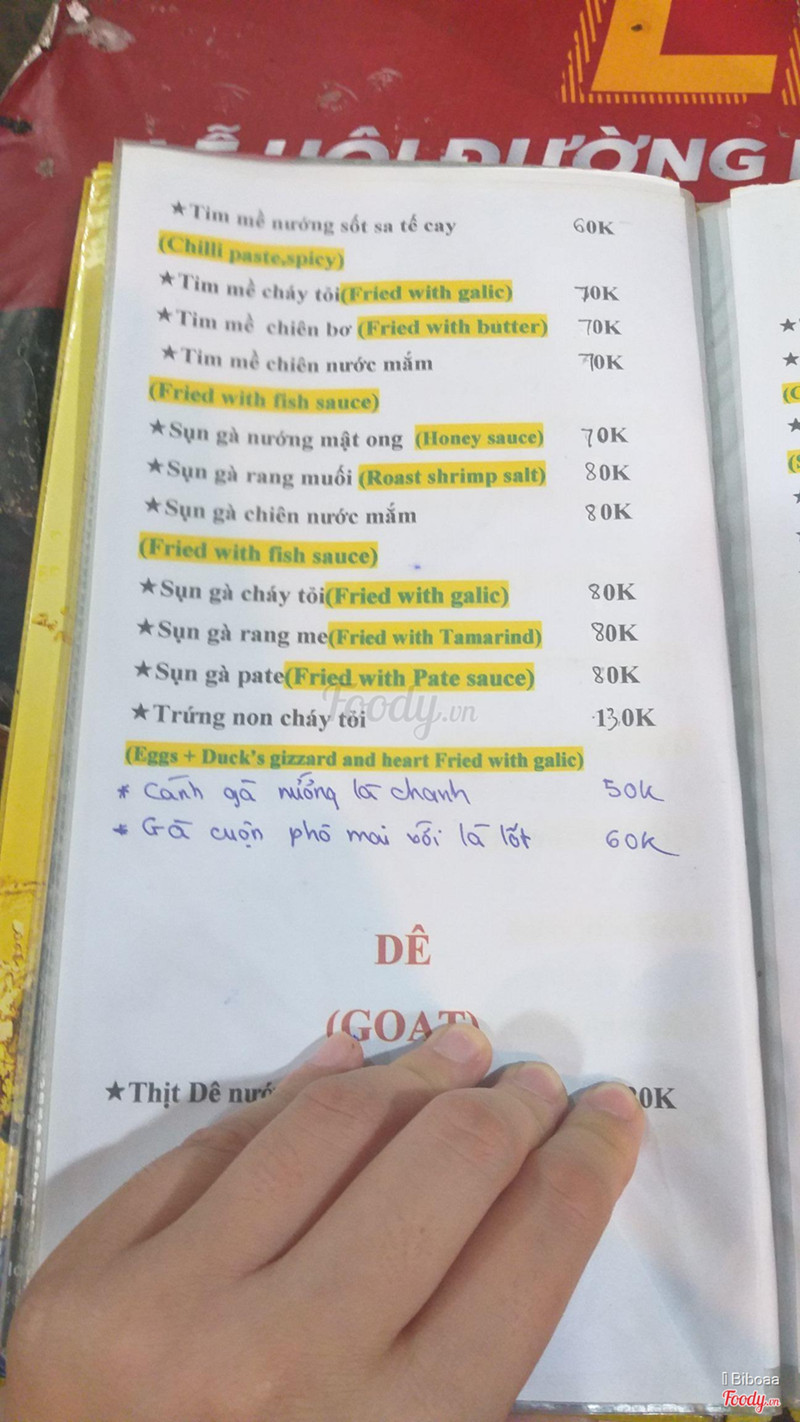 LỄ HỘI ĐƯỜNG
★Tim mề nướng sốt sa tế cay 60K
(Chilli paste,spicy)
★Tim mề cháy tỏi(Fried with galic) 70K
★Tim mề chiên bơ (Fried with butter) 70K
★Tim mề chiên nước mắm 70K
(Fried with fish sauce)
★Sụn gà nướng mật ong (Honey sauce) 70K
★Sụn gà rang muối (Roast shrimp salt) 80K
★Sụn gà chiên nước mắm 80K
(Fried with fish sauce)
★Sụn gà cháy tỏi(Fried with galic) 80K
★Sụn gà rang me(Fried with Tamarind) 80K
★Sụn gà pate(Fried with Pate sauce) 80K
★Trứng non cháy tỏi 130K
(Eggs + Duck's gizzard and heart Fried with galic)
* Cánh gà nướng lá chanh 50K
* Gà cuộn phô mai với lá lốt 60K
DÊ
(GOAT)
★Thịt Dê
Foody.vn
Biboaa
Foody.vn